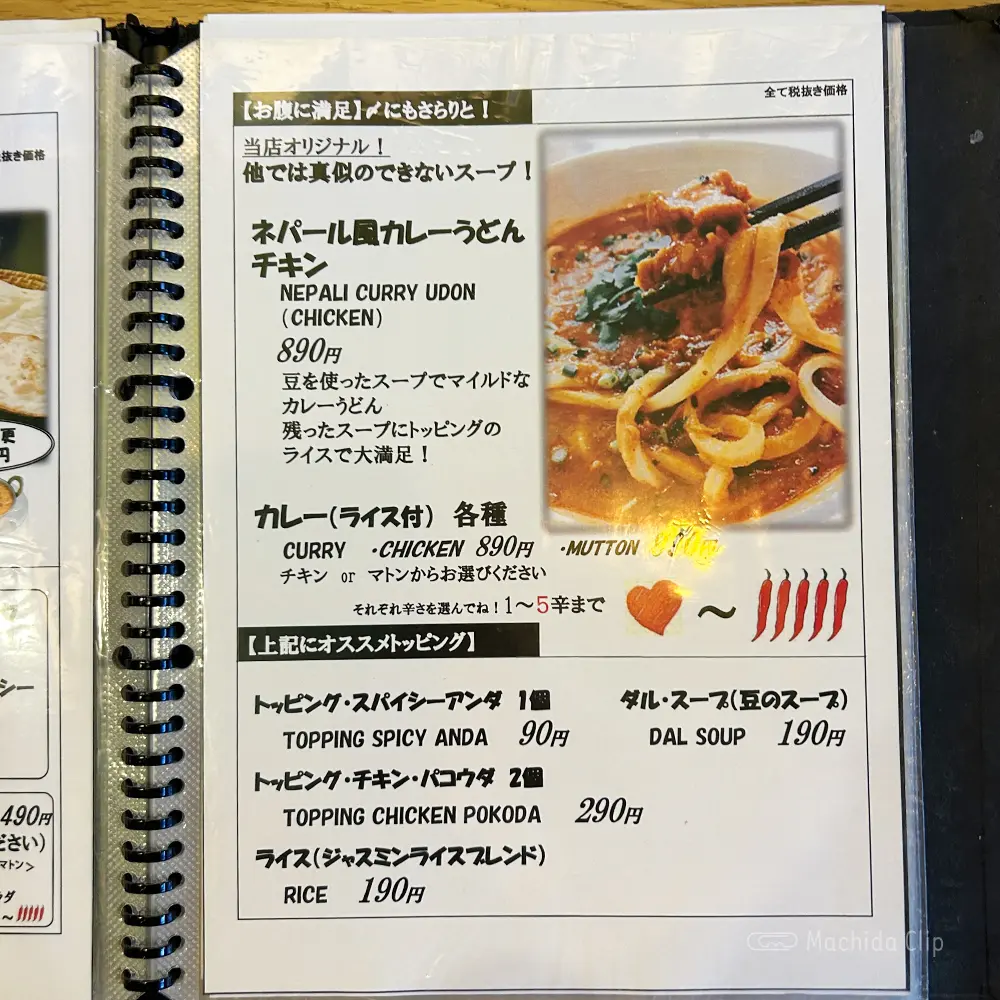 抜き価格
更
円
シー
490円
ださい)
マトン>
~
全て税抜き価格
【お腹に満足】〆にもさらりと!
当店オリジナル!
他では真似のできないスープ!
ネパール風カレーうどん
チキン
NEPALI CURRY UDON
(CHICKEN)
890円
豆を使ったスープでマイルドな
カレーうどん
残ったスープにトッピングの
ライスで大満足!
カレー(ライス付) 各種
CURRY ・CHICKEN 890円 ・MUTTON
チキン or マトンからお選びください
それぞれ辛さを選んでね!1~5辛まで
~
【上記にオススメトッピング】
トッピング・スパイシーアンダ 1個
TOPPING SPICY ANDA 90円
ダル・スープ(豆のスープ)
DAL SOUP 190円
トッピング・チキン・パコウダ 2個
TOPPING CHICKEN POKODA 290円
ライス(ジャスミンライスブレンド)
RICE 190円
Machida Clip